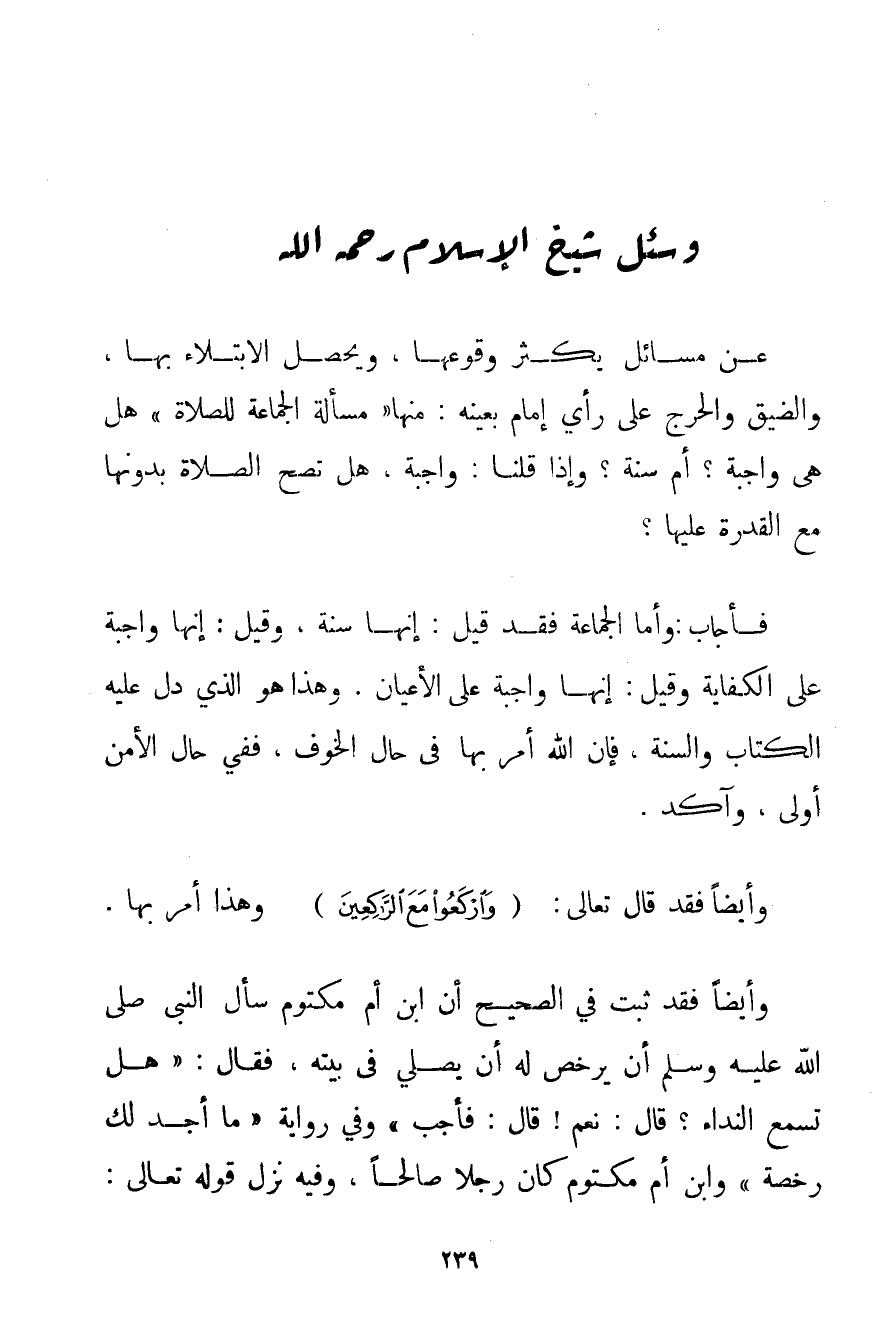 وسئل شيخ الإسلام رحمه الله
عن مسائل يكثر وقوعها ، ويحصل الابتلاء بها ،
والضيق والحرج على رأي إمام بعينه : منها« مسألة الجماعة للصلاة » هل
هى واجبة ؟ أم سنة ؟ وإذا قلنا : واجبة ، هل تصح الصلاة بدونها
مع القدرة عليها ؟
فأجاب :وأما الجماعة فقد قيل : إنها سنة ، وقيل : إنها واجبة
على الكفاية وقيل : إنها واجبة على الأعيان . وهذا هو الذي دل عليه
الكتاب والسنة ، فإن الله أمر بها فى حال الخوف ، ففي حال الأمن
أولى ، وآكد .
وأيضاً فقد قال تعالى : ( وَٱرْكَعُوا۟ مَعَ ٱلرَّٰكِعِينَ ) وهذا أمر بها .
وأيضاً فقد ثبت في الصحيح أن ابن أم مكتوم سأل النبى صلى
الله عليه وسلم أن يرخص له أن يصلي فى بيته ، فقال : « هل
تسمع النداء ؟ قال : نعم ! قال : فأجب » وفي رواية « ما أجد لك
رخصة » وابن أم مكتوم كان رجلا صالحاً ، وفيه نزل قوله تعالى :
٢٣٩